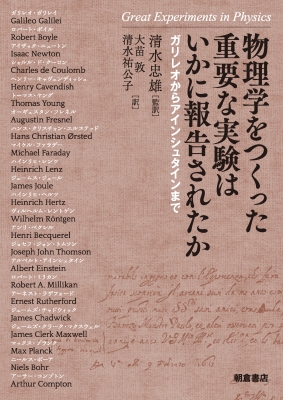 Great Experiments in Physics
物理学をつくった
重要な実験は
いかに報告されたか
ガリレオからアインシュタインまで
清水忠雄［監訳］
大苗 敦
清水祐公子［訳］
ガリレオ・ガリレイ
Galileo Galilei
ロバート・ボイル
Robert Boyle
アイザック・ニュートン
Isaac Newton
シャルル・ド・クーロン
Charles de Coulomb
ヘンリー・キャヴェンディッシュ
Henry Cavendish
トーマス・ヤング
Thomas Young
オーギュスタン・フレネル
Augustin Fresnel
ハンス・クリスティアン・エルステッド
Hans Christian Ørsted
マイケル・ファラデー
Michael Faraday
ハインリヒ・レンツ
Heinrich Lenz
ジェームス・ジュール
James Joule
ハインリヒ・ヘルツ
Heinrich Hertz
ヴィルヘルム・レントゲン
Wilhelm Röntgen
アンリ・ベクレル
Henri Becquerel
ジョセフ・ジョン・トムソン
Joseph John Thomson
アルベルト・アインシュタイン
Albert Einstein
ロバート・ミリカン
Robert A. Millikan
アーネスト・ラザフォード
Ernest Rutherford
ジェームズ・チャドウィック
James Chadwick
ジェームズ・クラーク・マクスウェル
James Clerk Maxwell
マックス・プランク
Max Planck
ニールス・ボーア
Niels Bohr
アーサー・コンプトン
Arthur Compton
朝倉書店